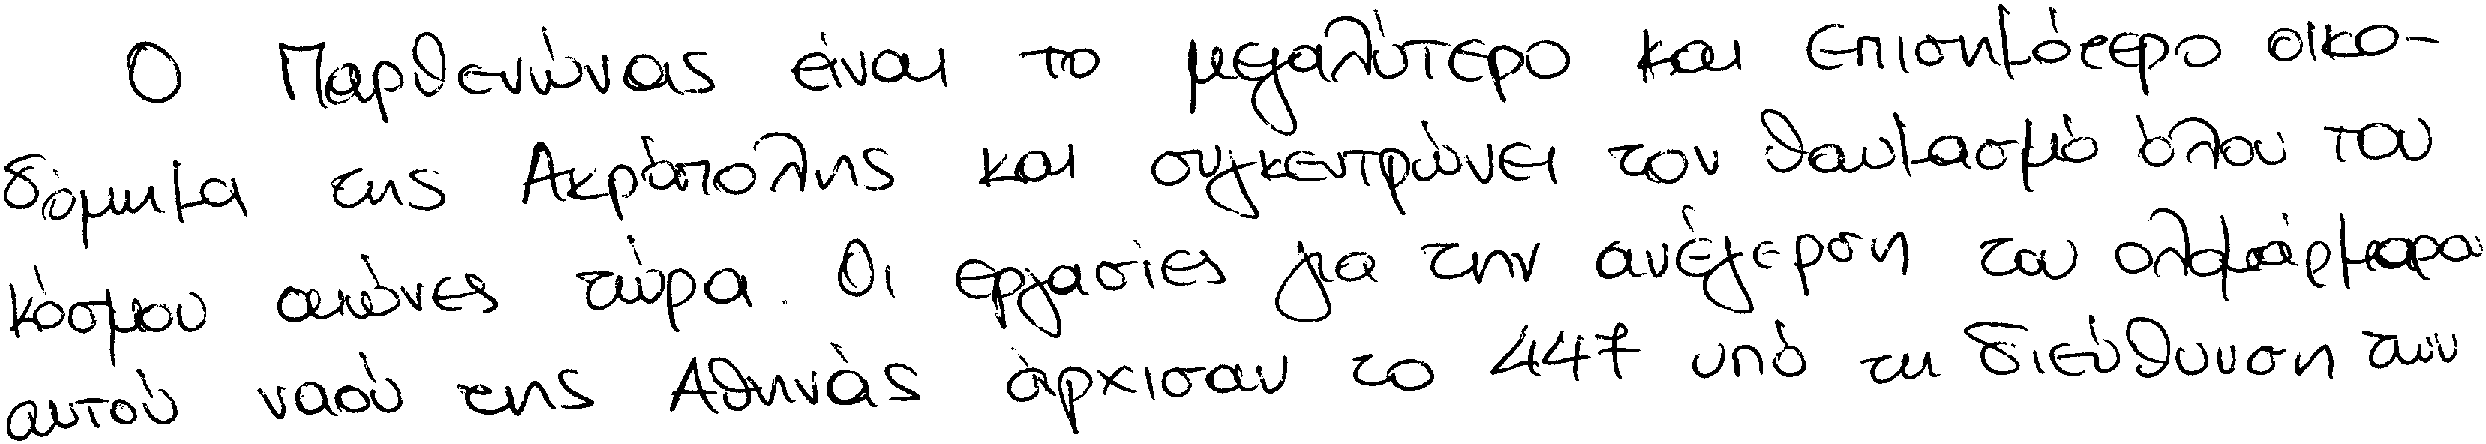 Ο Παρθενώνας είναι το μεγαλύτερο και επισημότερο οικο-
δόμημα της Ακρόπολης και συγκεντρώνει τον θαυμασμό όλου του
κόσμου αιώνες τώρα. Οι εργασίες για την ανέγερση του ολομάρμαρου
αυτού ναού της Αθηνάς άρχισαν το 447 υπό τη διεύθυνση των